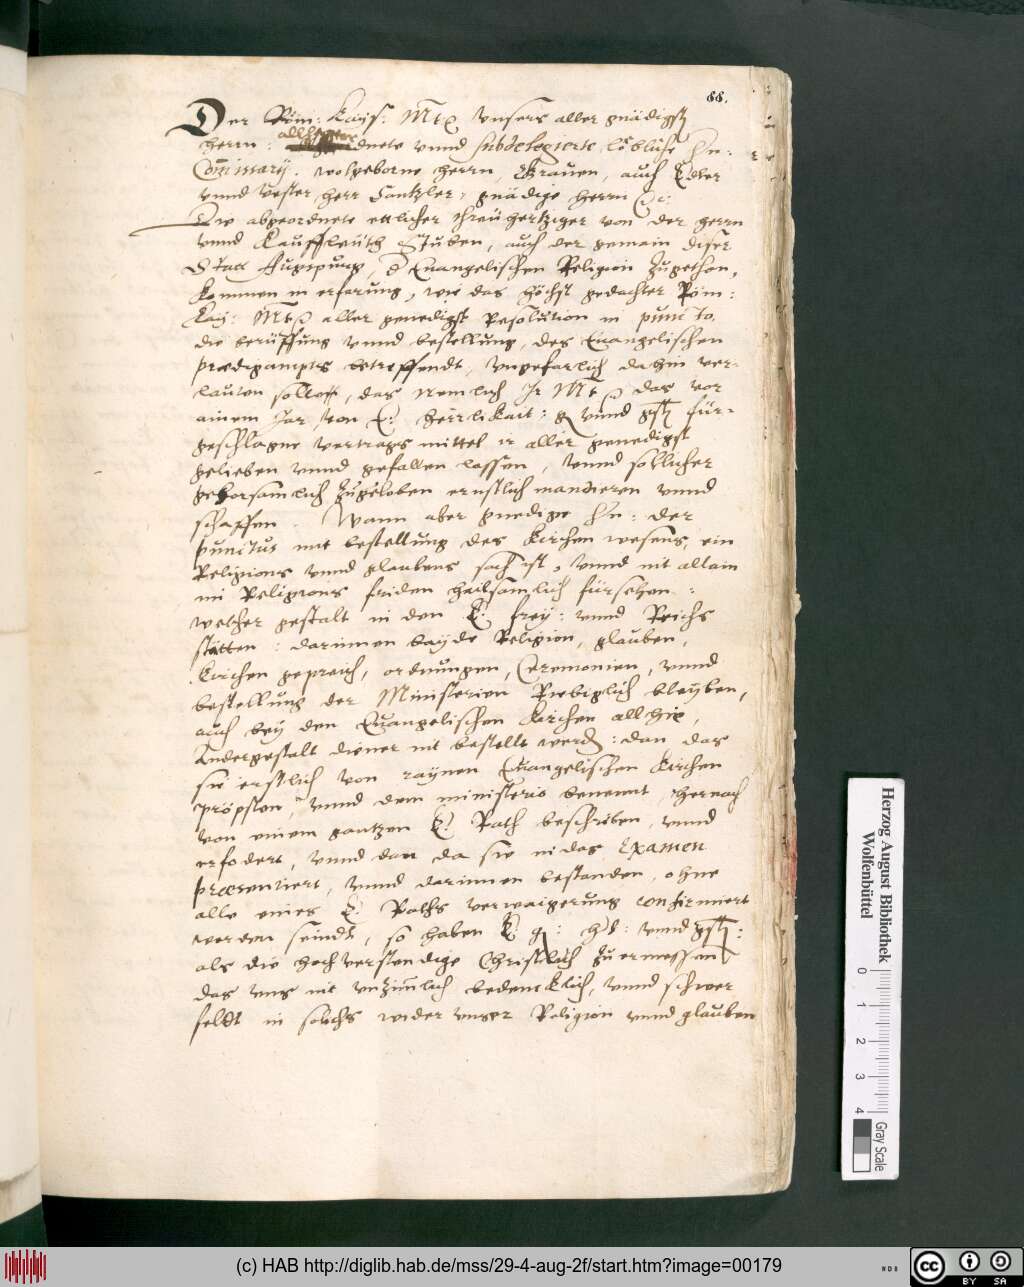 88.
Der Röm: Kays: Mtt unsers aller gnädigsten
herrn: allher geordnete unnd subdelegierte löbliche Hn:
Commissarÿ. wolgeborne herrn, Grauen, auch Edler
unnd Vester herr Cantzler, gnädige herrn
Die abgeordnete ettlicher threuhertziger von der herrn
unnd Kauffleuth Stuben, auch der gemain diser
Statt Augspurg, d Euangelischen Religion zugethon,
kommen in erfarung, wie das höchst gedachter Röm:
Kay: Mtt aller genedigst Resolution in puncto
die beruffung unnd bestellung, des Euangelischen
predigampts betreffendt, ungefarlich dahin ver-
lauten sollen, das nemlich Ir Mtt das vor
ainem Jar von E: herrlikait: g unnd gst für-
geschlagne vertrags mittel ir aller genedigst
gelieben unnd gefallen lassen, unnd sollicher
gehorsamlich zugeloben ernstlich mandieren unnd
schaffen. Wann aber gnedige Hn: der
punctus mit bestellung des Kirchen wesens, ein
Religions unnd glaubens sach ist, unnd nit allain
im Religions friden hailsamlich fürsehen:
welcher gestalt in den E: frey: unnd Reichs
stätten: darinnen bayde Religion, glauben,
Kirchen gepreich, ordnungen, Ceremonien, unnd
bestellung der Ministerien Ruebiglich bleyben,
auch bey den Euangelischen Kirchen allhie,
Andergestalt diener nit bestellt werden: dan das
sie erstlich von raynen Euangelischen Kirchen
pröpsten, unnd dem ministerio benennt, hernach
von einem gantzen E: Rath beschriben, unnd
erfodert, unnd dan da sie in das Examen
præsentiert, unnd darinnen bestanden, ohne
alle eines E: Raths verwaigerung confirmiert
werden seindt, so haben E g: h: unnd gst:
als die hochverstendige Christlich zu ermessen
das uns nit unzimlich bedencklich, unnd schwer
feldt in solichs wider unser Religion unnd glauben
Herzog August Bibliothek
Wolfenbüttel
0 1 2 3 4
Gray Scale
(c) HAB http://diglib.hab.de/mss/29-4-aug-2f/start.htm?image=00179
WDB
cc BY SA